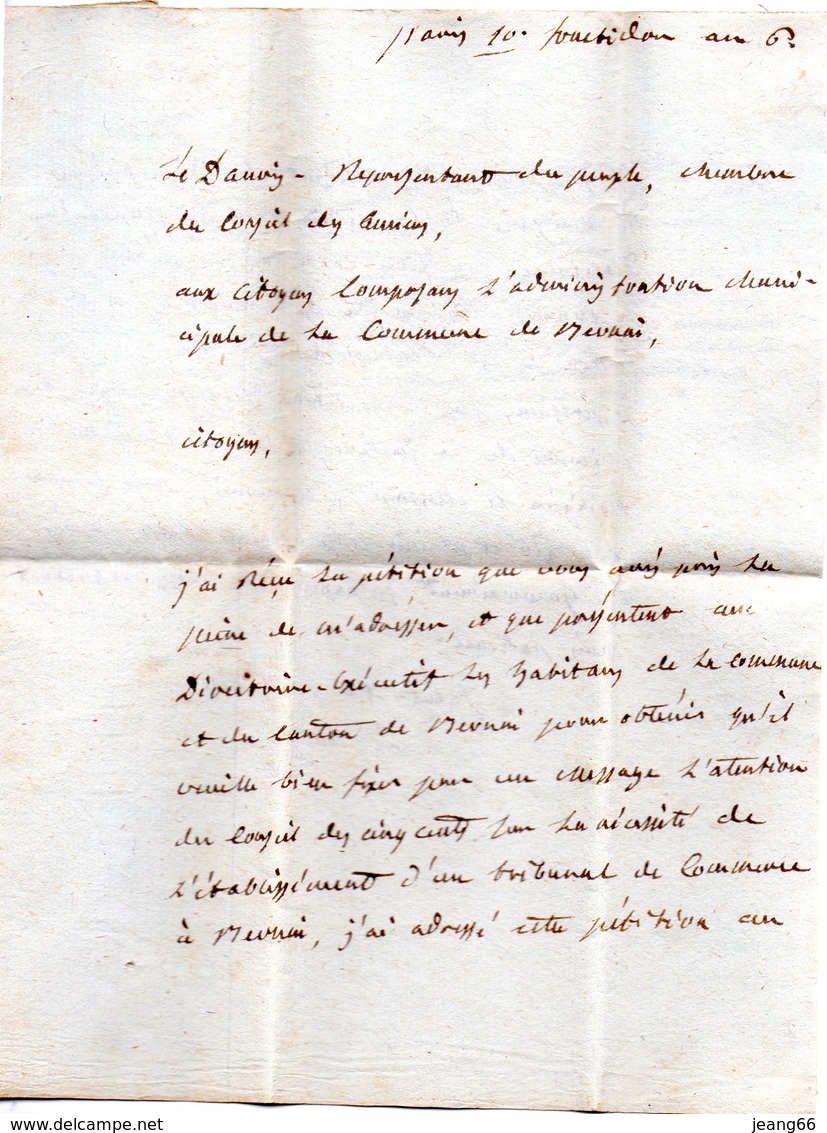 paris 10. fructidor an 6e.
Le Danois - Représentant du peuple, membre
du Conseil des anciens,
aux citoyens Composans L'administration muni-
cipale de la Commune de Bernai,
citoyens,
j'ai Réçu La pétition que vous avés pris La
peine de m'adresser, et que présentent au
Directoire Exécutif Les habitans de La commune
et du Canton de Bernai pour obtenir qu'il
veuille bien fixer par un message L'atention
du Conseil des cinq cents sur La nécessité de
L'établissément d'un tribunal de Commerce
à Bernai, j'ai adressé cette pétition au
www.delcampe.net
jeang66